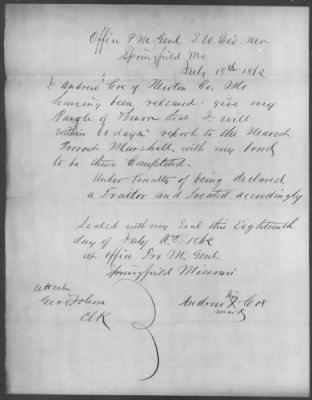 Office P M Genl S. W. Div. Mo
Springfield Mo
July 18th 1862
I Andrew Cox of Newton Co. Mo
having been released give my
Parole of Honor that I will
within 10 days report to the Nearest
Provost Marshall, with my bond
to be there Completed.
Under Penalty of being declared
a Traitor and treated accordingly
Sealed with my Seal this Eighteenth
day of July A.D. 1862
at Office Pro M. Genl
Springfield Missouri
Attest
Geo
Clk
Andrew his X Cox
mark